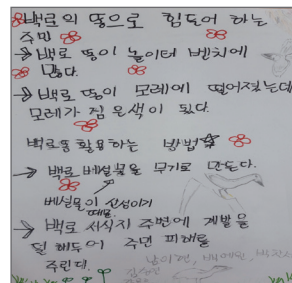 백로의 똥으로 힘들어 하는
주민
→ 백로 똥이 놀이터 벤치에
많다.
→ 백로 똥이 모레에 떨어졌는데
모레가 짐은색이 됬다.
백로를 활용하는 방법☆
→ 백로 배설물을 무기로 만든다.
배설물이 산성이기
때문
→ 백로 서식지 주변에 개발을
덜 해두어 주민 피해를
주린다.